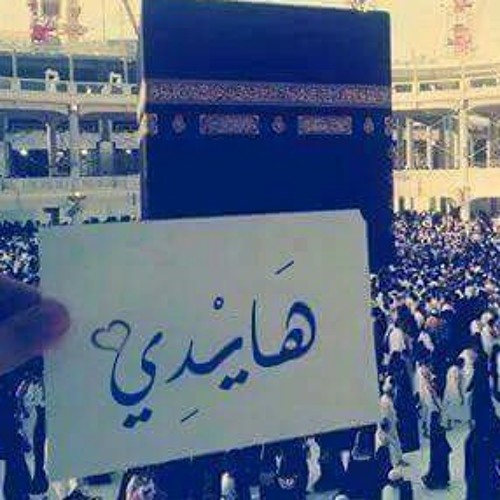 هَايْدِي